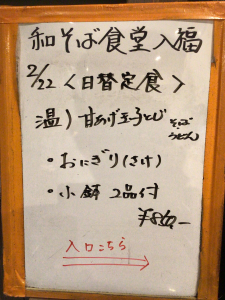 和そば食堂 入福
2/22 <日替定食>
温) 甘あげ玉子とじ そば うどん
・おにぎり(さけ)
・小鉢 2品付
入口こちら